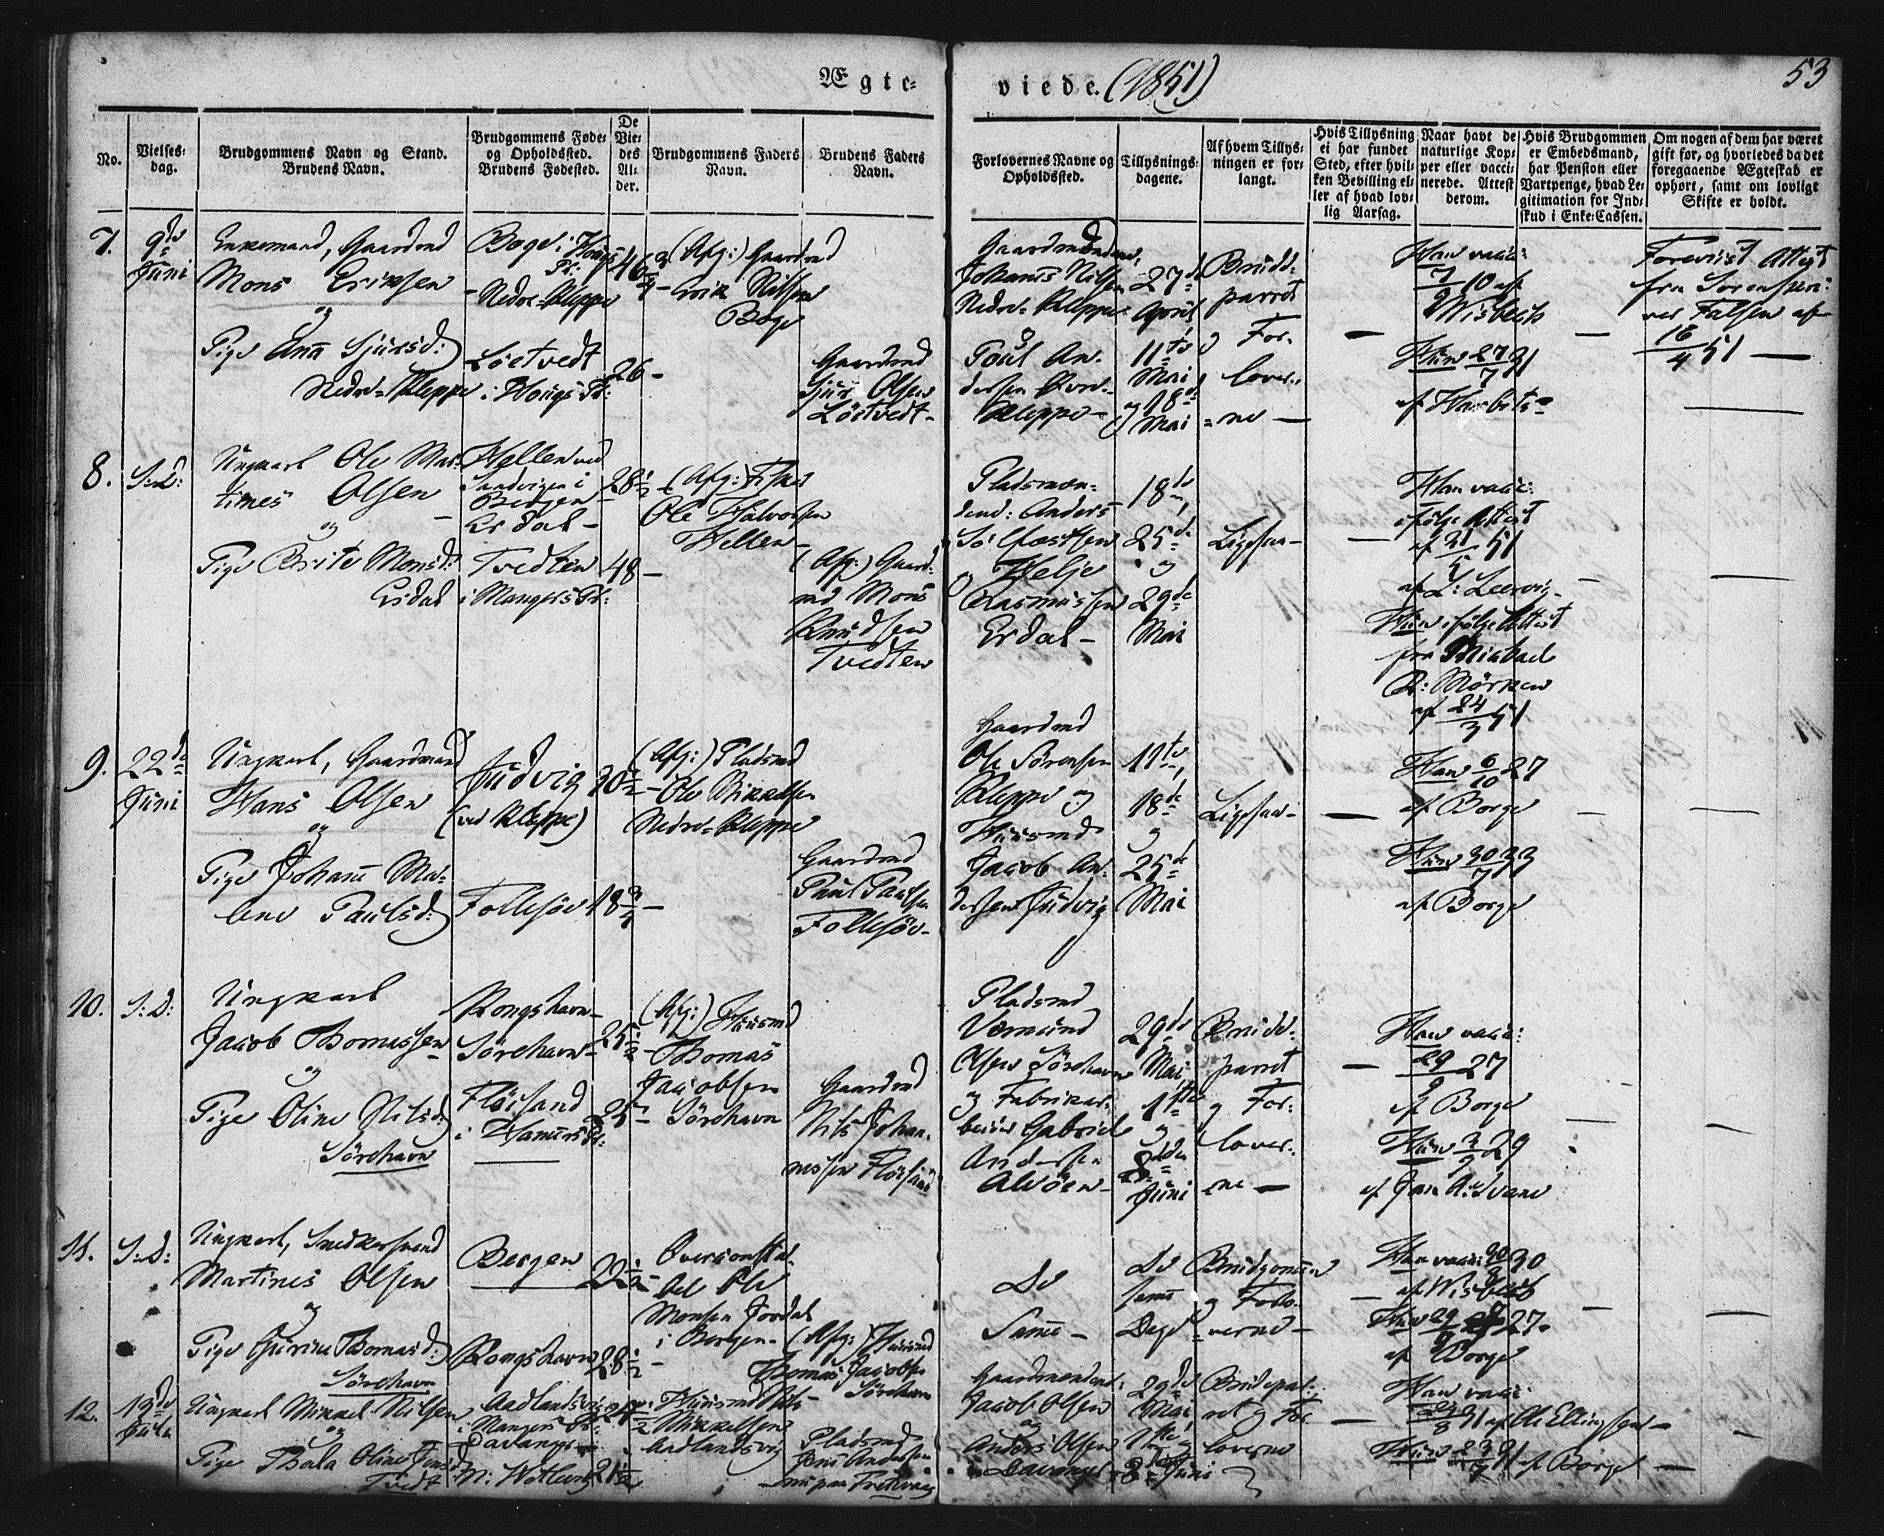 Ægte-
viede. (1851)
53
No.
Vielses-
dag.
Brudgommens Navn og Stand.
Brudens Navn.
Brudgommens Føde-
og Opholdssted.
Brudens Fødested.
De
Vie-
des
Al-
der.
Brudgommens Faders
Navn.
Brudens Faders
Navn.
Forlovernes Navne og
Opholdssted.
Tillysnings-
dagene.
Af hvem Tillys-
ningen er for-
langt.
Hvis Tillysning
ei har fundet
Sted, efter hvil-
ken Bevilling el-
ler af hvad lov-
lig Aarsag.
Naar havt de
naturlige Kop-
per eller vacci-
nerede. Attest
derom.
Hvis Brudgommen
er Embedsmand,
har Pension eller
Vartpenge, hvad Le-
gitimation for Ind-
skud i Enke-Cassen.
Om nogen af dem har været
gift før, og hvorledes da det
foregaaende Ægteskab er
ophørt, samt om lovligt
Skifte er holdt.
7.
9de
Juni
Enkemand, Gaardmd
Mons Eriksen
og
Pige Ann Sjursd:
Nedre-Kleppe
Boge i Hougs
Pr:
Nedre-Kleppe
Løetvedt
i Hougs Pr:
46 3/4
26 -
(Afg:) Gaardmd
Erik Nilsen
Boge
Gaardmd
Sjur Olsen
Løetvedt -
Gaardmændene,
Johannes Nilsen
Nedre-Kleppe
og
Poul An-
dersen
Kleppe -
27de
April
11te
Mai
og 18de
Mai
Brude-
parret
og For-
lover-
ne -
Han vacc:
af
Wisbech
Hun 27/7 31
af Harbitz
Forevist Attest
fra Sorenskri-
ver Falsen af
16/4 51 -
8.
S: D:
Ungkarl Ole Mar-
tines Olsen
og
Pige Brite Monsd:
Erdal
Hellen ved
Sandvigen i
Bergen
Erdal -
Tvedten
i Mangers Pr:
28 1/2
48 -
(Afg:)
Ole Halvorsen
Hellen -
(Afg:) Gaard-
md Mons
Knudsen
Tvedten
Pladsmæn-
dene: Anders
og Helje
Rasmussen
Erdal -
18de,
25de
og
29de
Mai
Ligesaa -
Han vacc:
ifølge Attest
af 21/5 51
af L: Leervig -
Hun ifølge Attest
fra Michael
R: Mørken
af 24/3 51
9.
22de
Juni
Ungkarl, Gaardmand
Hans Olsen
og
Pige Johann Ma-
lene Paulsd:
Judvig
(ved Kleppe)
Follesøe
30 1/2 -
18 3/4 -
(Afg:) Pladsmd
Ole Mikkelsen
Nedre-Kleppe
Gaardmd
Paul Paulsen
Follesøe -
Gaardmd
Ole Sørensen
Kleppe og
Huusmd
Jacob An-
dersen Judvig
11te,
18de
og
25de
Mai
Ligesaa -
Han 6/10 27
af Borge
Hun 30/7 33
af Borge
10.
S: D:
Ungkarl
Jacob Thomassen
og
Pige Oline Nilsd:
Sørehavn
Kongshavn -
Sørehavn -
Fløisand
i Hammers Pr:
25 1/2
25 -
(Afg:) Huusmd
Thomas
Jacobsen
Sørehavn
Gaardmd
Nils Johan-
nessen Fløisand
Pladsmd
Værmund
Olsen Sørehavn
og Fabrikar-
beider Gabriel
Andersen
Alvøen -
29de
Mai
1ste
og
8de
Juni
Brude-
parret
og For-
lover-
ne -
Han vacc:
af Borge
Hun 3/9 29
11.
S: D:
Ungkarl, Snedkersvend
Martines Olsen
og
Pige Gurine Thomasd:
Sørehavn
Bergen
Kongshavn
22 1/2 -
28 1/2 -
Overconsta-
bel Ole
Monsen Jordal
i Bergen -
(Afg:) Huusmd
Thomas Jacobsen
Sørehavn
De
Samme -
De
samme
Dage
Brudgommen
og Forlo-
verne -
Han vacc:
af Wisbech
af Borge
12.
13de
Juli
Ungkarl Mikkel Nilsen
og
Pige Thala Oline Jensd:
Tvedt
Aadlandsvig
i Mangers Pr:
Davanger
24 1/2
21 1/2
Huusmd Nils
Mikkelsen
Aadlandsvig
Pladsmd
Jens Andersen
Gaardmændene:
Jacob Olsen
og
Anders Olsen
Davanger
29de
Mai,
1ste og
8de Juni
Brudepar-
ret og For-
loverne
Han vacc:
af Ole Ellingsen -
Hun 23/7 31 af Borge -